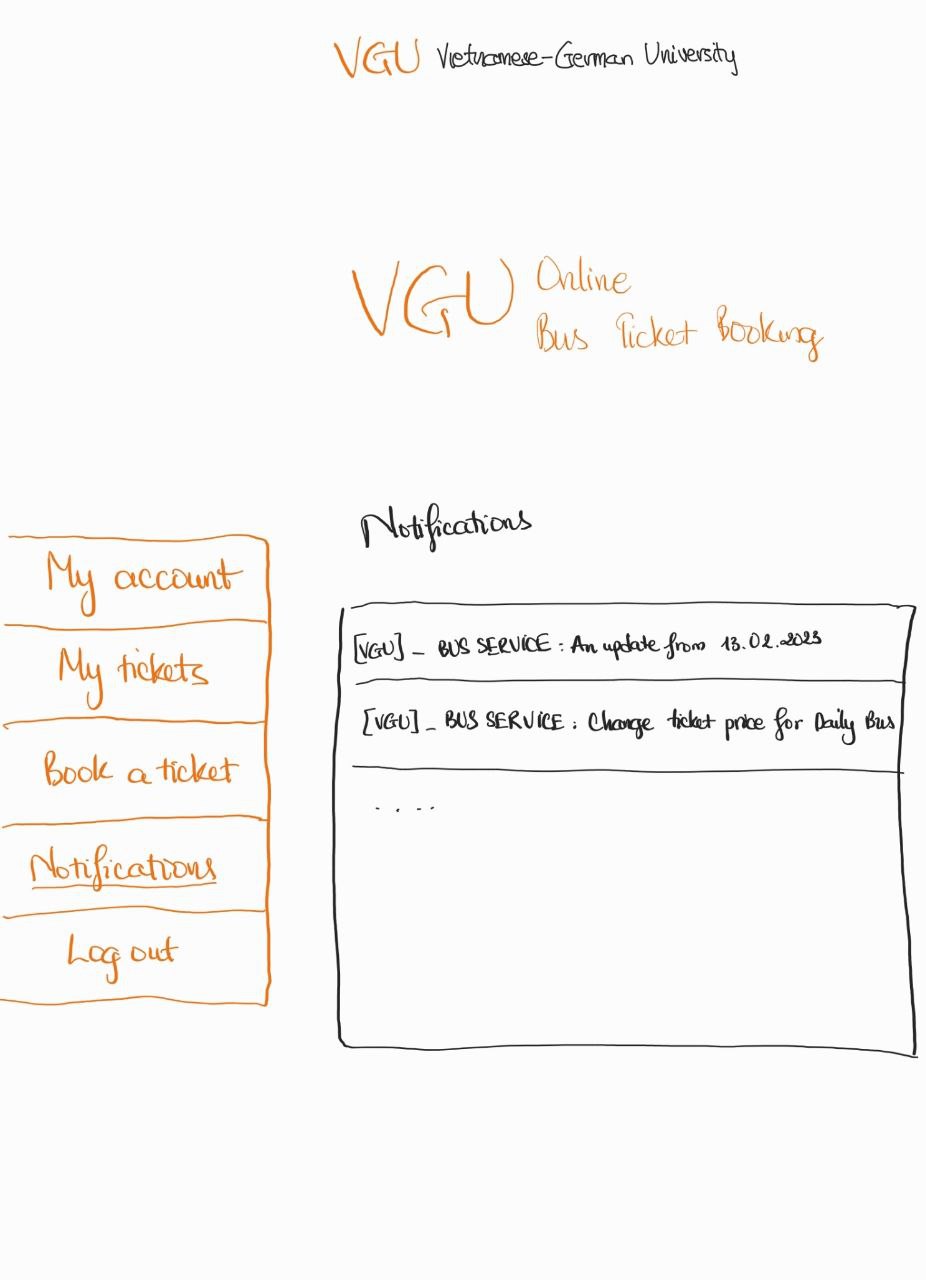 VGU Vietnamese-German University
VGU Online
Bus Ticket Booking
My account
My tickets
Book a ticket
Notifications
Log out
Notifications
[VGU] - BUS SERVICE : An update from 13.02.2023
[VGU] - BUS SERVICE : Change ticket price for Daily Bus
. . . .